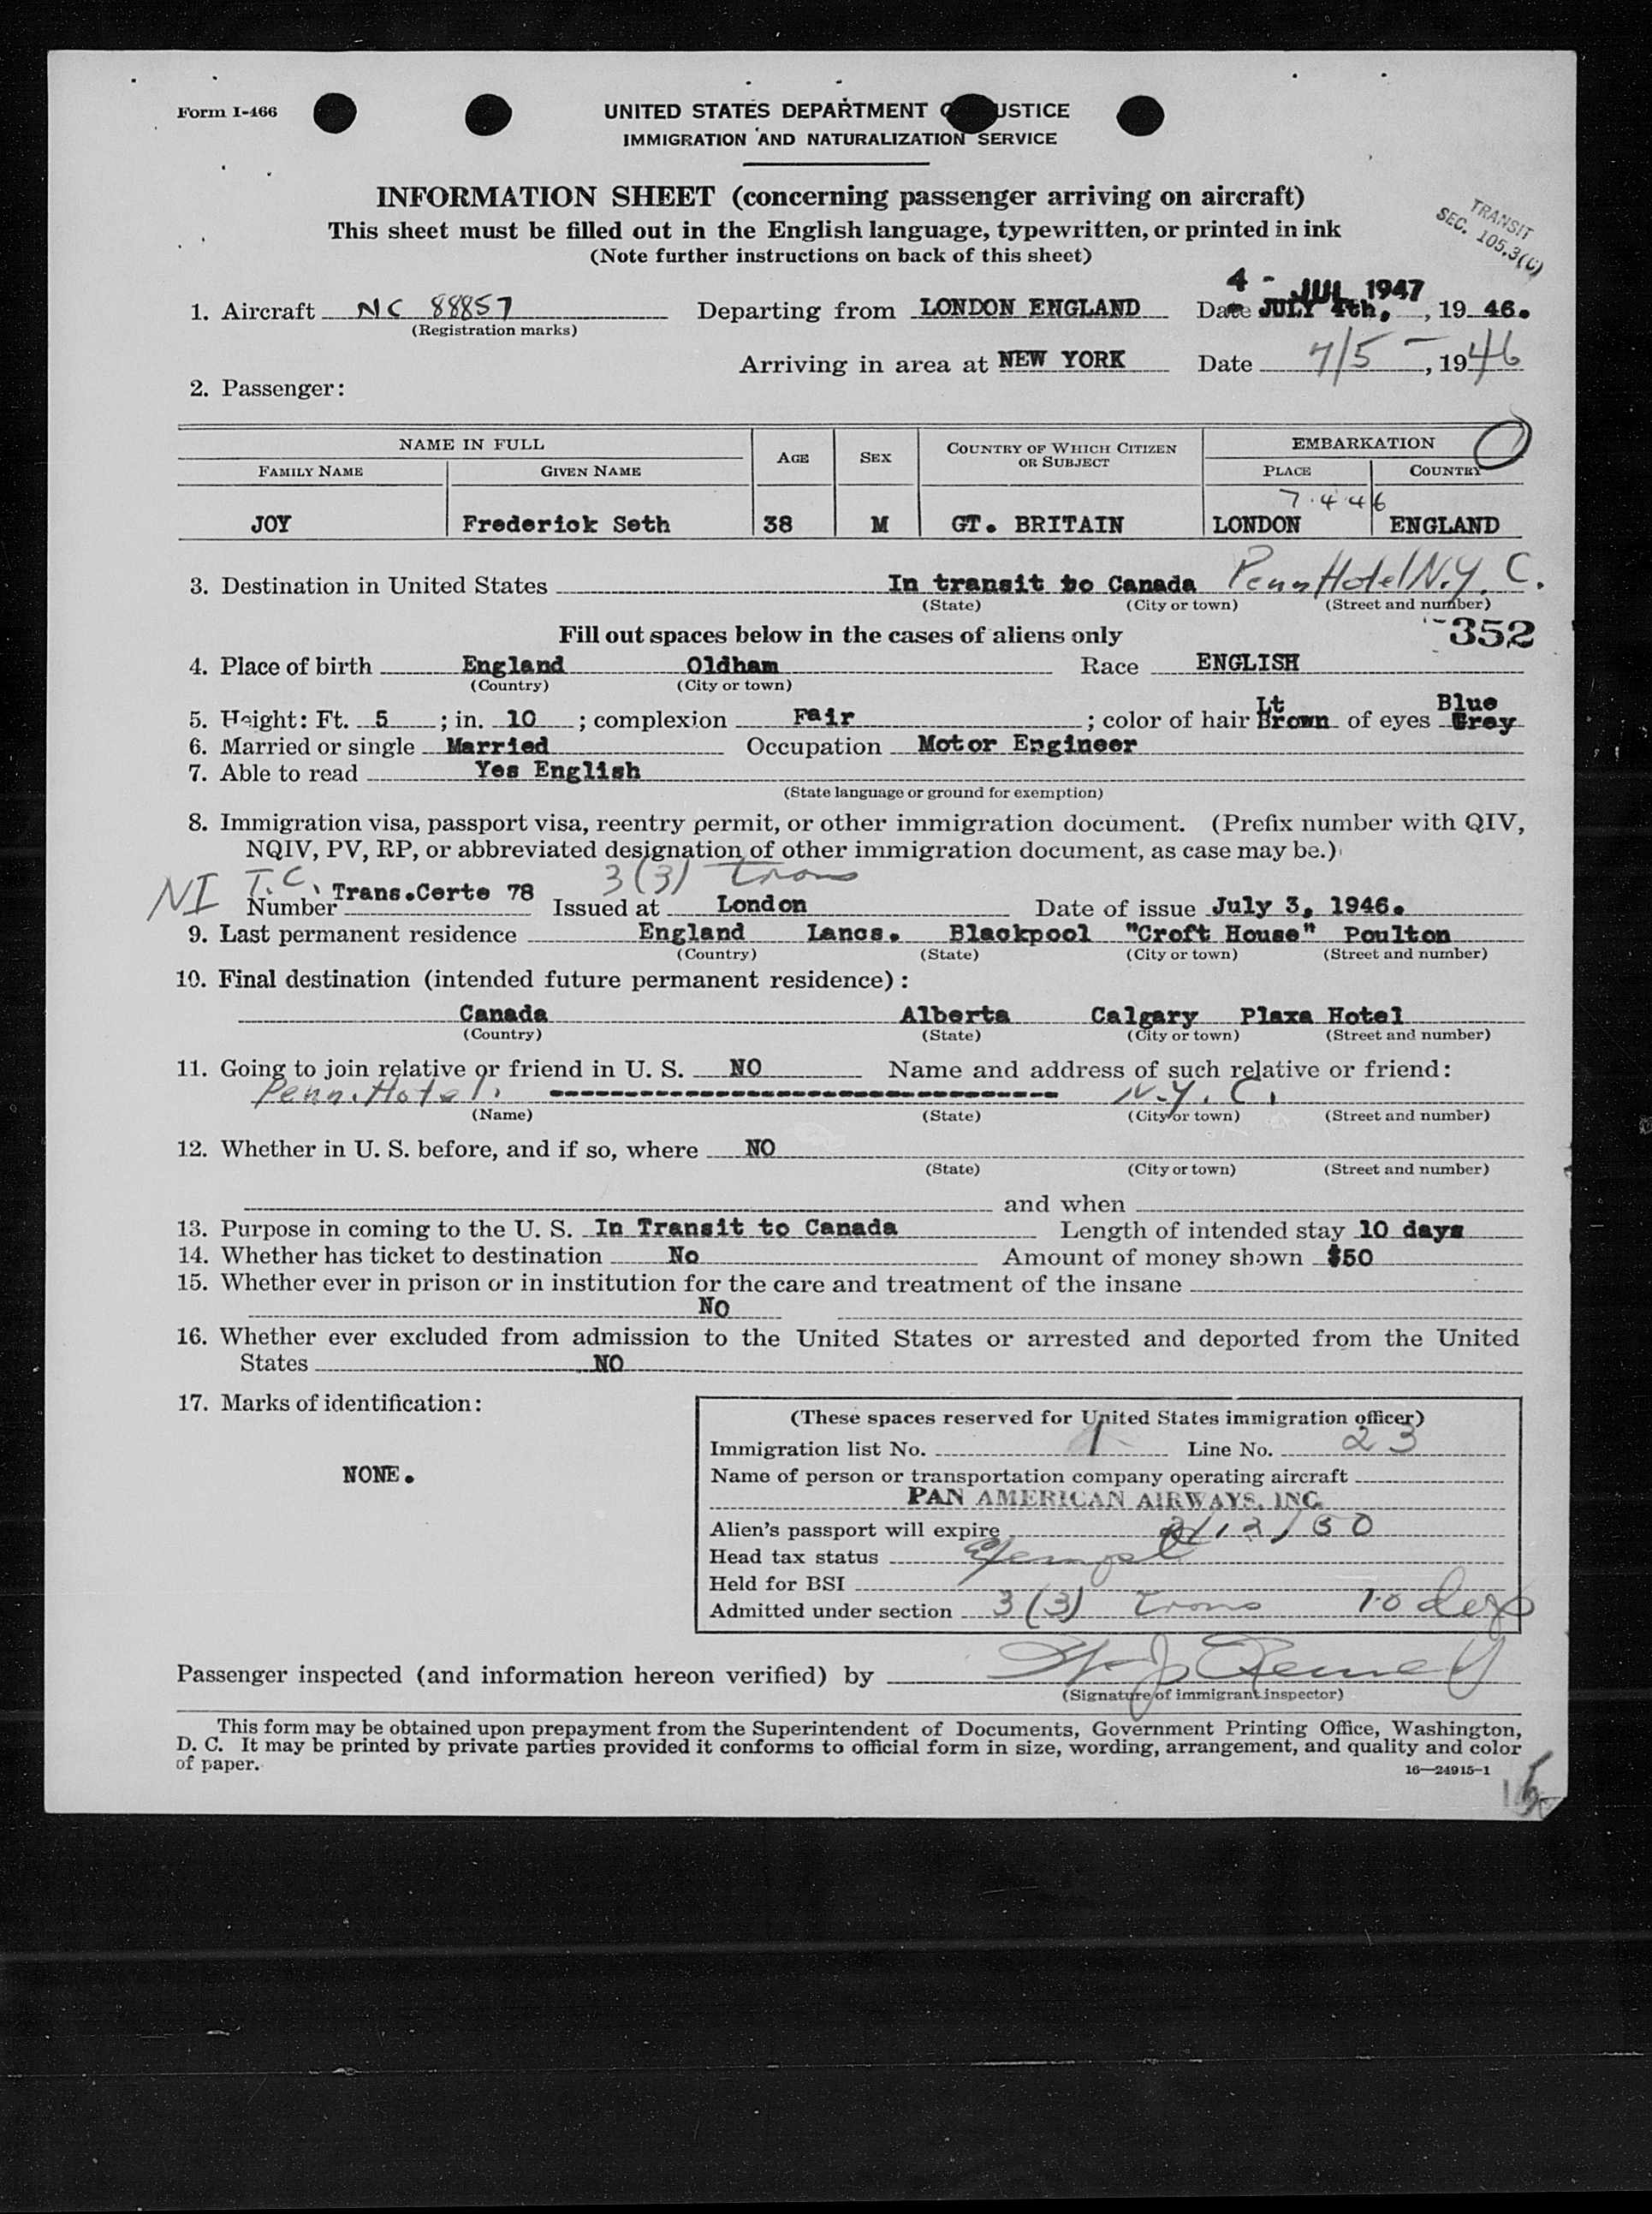 Form I-466
UNITED STATES DEPARTMENT O USTICE
IMMIGRATION AND NATURALIZATION SERVICE
INFORMATION SHEET (concerning passenger arriving on aircraft)
This sheet must be filled out in the English language, typewritten, or printed in ink
(Note further instructions on back of this sheet)
TRANSIT
SEC. 105.3(c)
4 - JUL 1947
1. Aircraft NC 88857 Departing from LONDON ENGLAND Date JULY 4th, , 19 46.
(Registration marks)
Arriving in area at NEW YORK Date 7/5 - , 1946
2. Passenger:
NAME IN FULL AGE SEX COUNTRY OF WHICH CITIZEN OR SUBJECT EMBARKATION
FAMILY NAME GIVEN NAME PLACE COUNTRY
7.4 46
JOY Frederick Seth 38 M GT. BRITAIN LONDON ENGLAND
3. Destination in United States In transit to Canada Penn Hotel N.Y. C.
(State) (City or town) (Street and number)
Fill out spaces below in the cases of aliens only 352
4. Place of birth England Oldham Race ENGLISH
(Country) (City or town)
Lt Blue
5. Height: Ft. 5 ; in. 10 ; complexion Fair ; color of hair Brown of eyes Grey
6. Married or single Married Occupation Motor Engineer
7. Able to read Yes English
(State language or ground for exemption)
8. Immigration visa, passport visa, reentry permit, or other immigration document. (Prefix number with QIV,
NQIV, PV, RP, or abbreviated designation of other immigration document, as case may be.)
NI T.C. 3(3) trans
Number Trans.Certe 78 Issued at London Date of issue July 3, 1946.
9. Last permanent residence England Lancs. Blackpool "Croft House" Poulton
(Country) (State) (City or town) (Street and number)
10. Final destination (intended future permanent residence):
Canada Alberta Calgary Plaxa Hotel
(Country) (State) (City or town) (Street and number)
11. Going to join relative or friend in U. S. NO Name and address of such relative or friend:
Penn. Hotel. ------------------------------ N.Y. C.
(Name) (State) (City or town) (Street and number)
12. Whether in U. S. before, and if so, where NO
(State) (City or town) (Street and number)
and when
13. Purpose in coming to the U. S. In Transit to Canada Length of intended stay 10 days
14. Whether has ticket to destination No Amount of money shown $50
15. Whether ever in prison or in institution for the care and treatment of the insane
NO
16. Whether ever excluded from admission to the United States or arrested and deported from the United
States NO
17. Marks of identification:
NONE.
(These spaces reserved for United States immigration officer)
Immigration list No. 1 Line No. 23
Name of person or transportation company operating aircraft
PAN AMERICAN AIRWAYS, INC.
Alien's passport will expire 2/12/50
Head tax status Exempt
Held for BSI
Admitted under section 3 (3) trans 10 days
Passenger inspected (and information hereon verified) by
(Signature of immigrant inspector)
This form may be obtained upon prepayment from the Superintendent of Documents, Government Printing Office, Washington,
D. C. It may be printed by private parties provided it conforms to official form in size, wording, arrangement, and quality and color
of paper.
16—24915-1